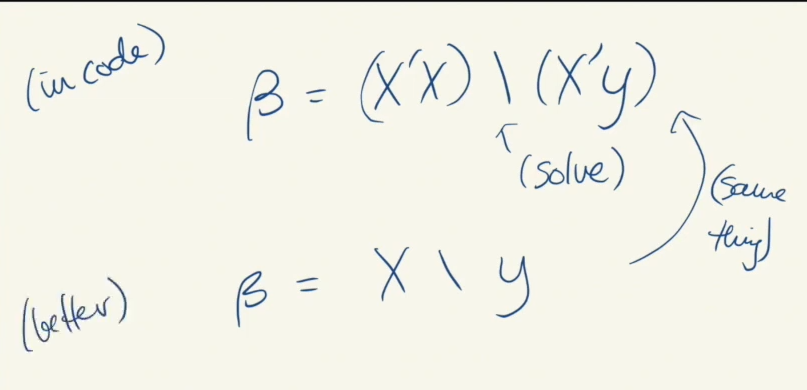 (in code)
β = (X'X) \ (X'y)
(solve)
(same
thing)
(better)
β = X \ y